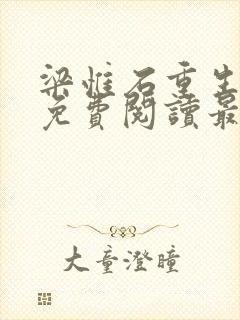 梁惟石重生
免費閱讀最
大童澄瞳